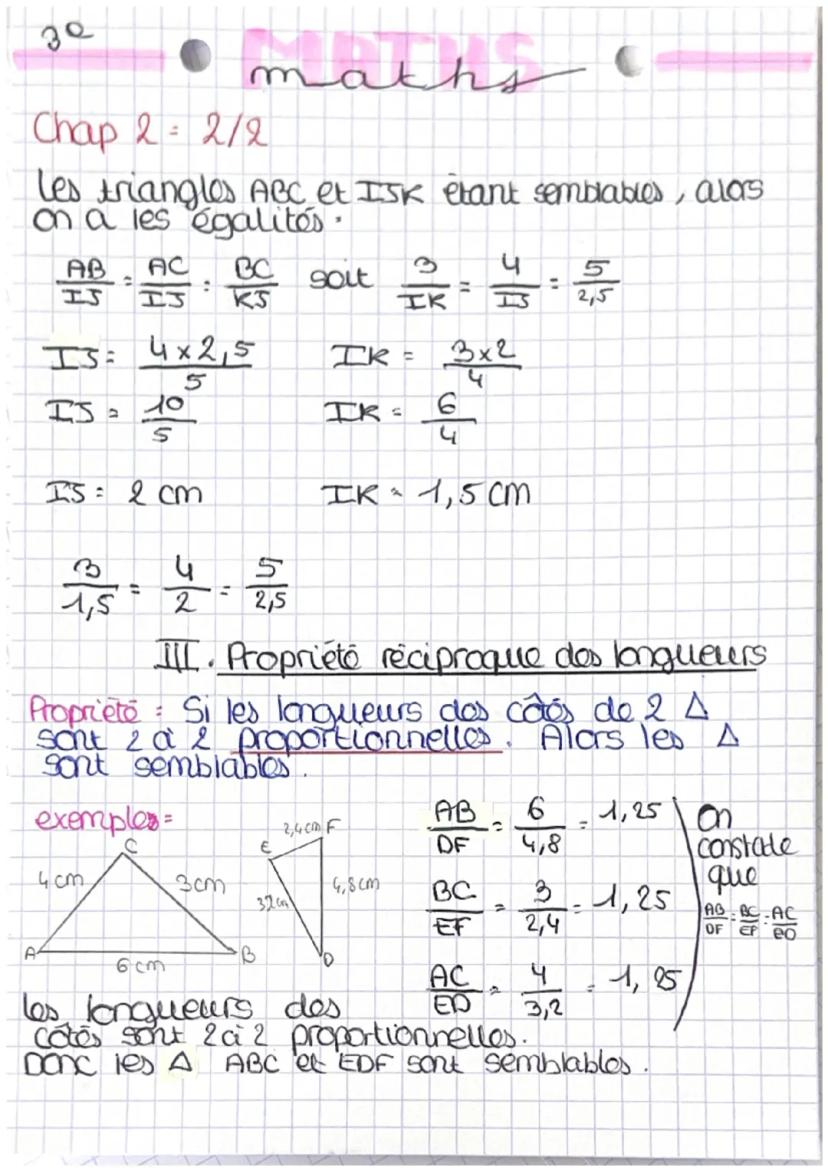 3e
MATHS
maths
Chap 2 = 2/2
Les triangles ABC et IJK étant semblables, alors
on a les égalités :
AB/IJ = AC/IJ = BC/KJ soit 3/IK = 4/IJ = 5/2,5
IJ = 4x2,5/5 IK = 3x2/4
IJ = 10/5 IK = 6/4
IJ = 2 cm IK = 1,5 cm
3/1,5 = 4/2 = 5/2,5
III. Propriété réciproque des longueurs
Propriété : Si les longueurs des côtés de 2 Δ
sont 2 à 2 proportionnelles. Alors les Δ
sont semblables.
exemples =
C
4 cm
3cm
A
B
6 cm
E
2,4cm F
3,2cm
4,8cm
D
AB/DF = 6/4,8 = 1,25
BC/EF = 3/2,4 = 1,25
AC/ED = 4/3,2 = 1,25
On
constate
que
AB/DF = BC/EF = AC/ED
les longueurs des
côtés sont 2 à 2 proportionnelles.
Donc les Δ ABC et EDF sont semblables.